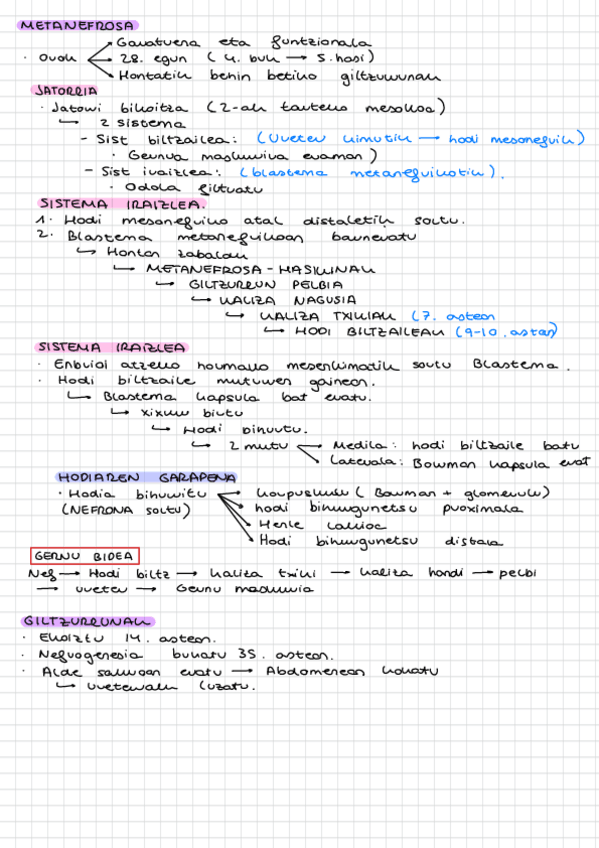 METANEFROSA
· Ondk → Garatuena eta funtzionala
→ 28. egun (4. buk → 5. hasi)
→ Hontatik behin betiko giltzurrunak
JATORRIA
· Jatorri bikoitza (2-ak tarteko mesokoa)
↳ 2 sistema
- Sist biltzailea: (Ureter kimutik → hodi mesonefrik)
· Gernua maskurira eraman)
- Sist iraizlea: (blastema metanefrikotik).
· Odola filtratu
SISTEMA IRAIZLEA.
1. Hodi mesonefriko atal distaletik sortu.
2. Blastema metanefrikoan barneratu
↳ Hontan zabaldu
↳ METANEFROSA - HASIKINAK
↳ GILTZURRUN PELBIA
↳ KALIZA NAGUSIA
↳ KALIZA TXIKIAK (7. astean
↳ HODI BILTZAILEAK (9-10. astan)
SISTEMA IRAIZLEA
· Enbrioi atzeko hormako mesenkimatik sortu Blastema.
· Hodi biltzaile muturren gainean.
↳ Blastema kapsula bat eratu.
↳ xixku birtu
↳ Hodi bihurtu.
↳ 2 mutu → Mediala: hodi biltzaile batu
→ Laterala: Bowman kapsula erat
HODIAREN GARAPENA
· Hodia bihurritu → korpuskulu (Bowman + glomerulu)
(NEFRONA sortu) → hodi bihurgunetsu proximala
→ Henle
→ Hodi bihurgunetsu distala
GERNU BIDEA
Nef → Hodi biltz → kaliza txiki → kaliza handi → pelbi
→ ureter → Gernu maskuria
GILTZURRUNAK
· Ekoiztu 14. astean.
· Nefrogenesia bukatu 35. astean.
· Alde sakroan eratu → Abdomenean kokatu
↳ ureterrak luzatu.